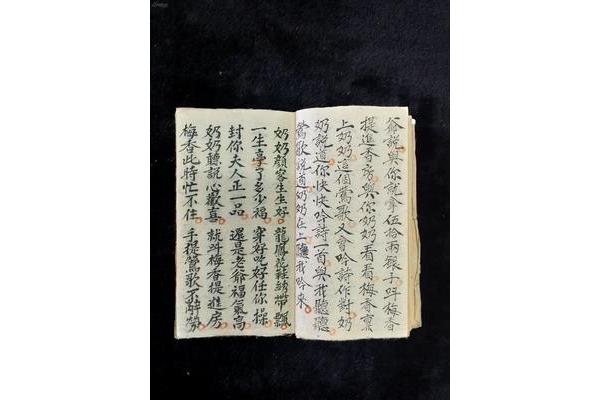 爺說與你就拿伍拾兩銀子呌梅香
提進香房與你奶奶看看梅香稟
上奶奶這個鶯歌又會吟詩作對奶
奶說道你快快吟詩一首與我聽聽
鶯歌說道奶奶在上聽我吟來
奶奶顔容生生好 龍鳳花鞋綉帶飄
一生享了多少福 穿好吃好任你操
封你夫人正一品 還是老爺福氣高
奶奶聽說心歡喜 就呌梅香提進房
梅香此時忙不住 手提鶯歌不辭勞